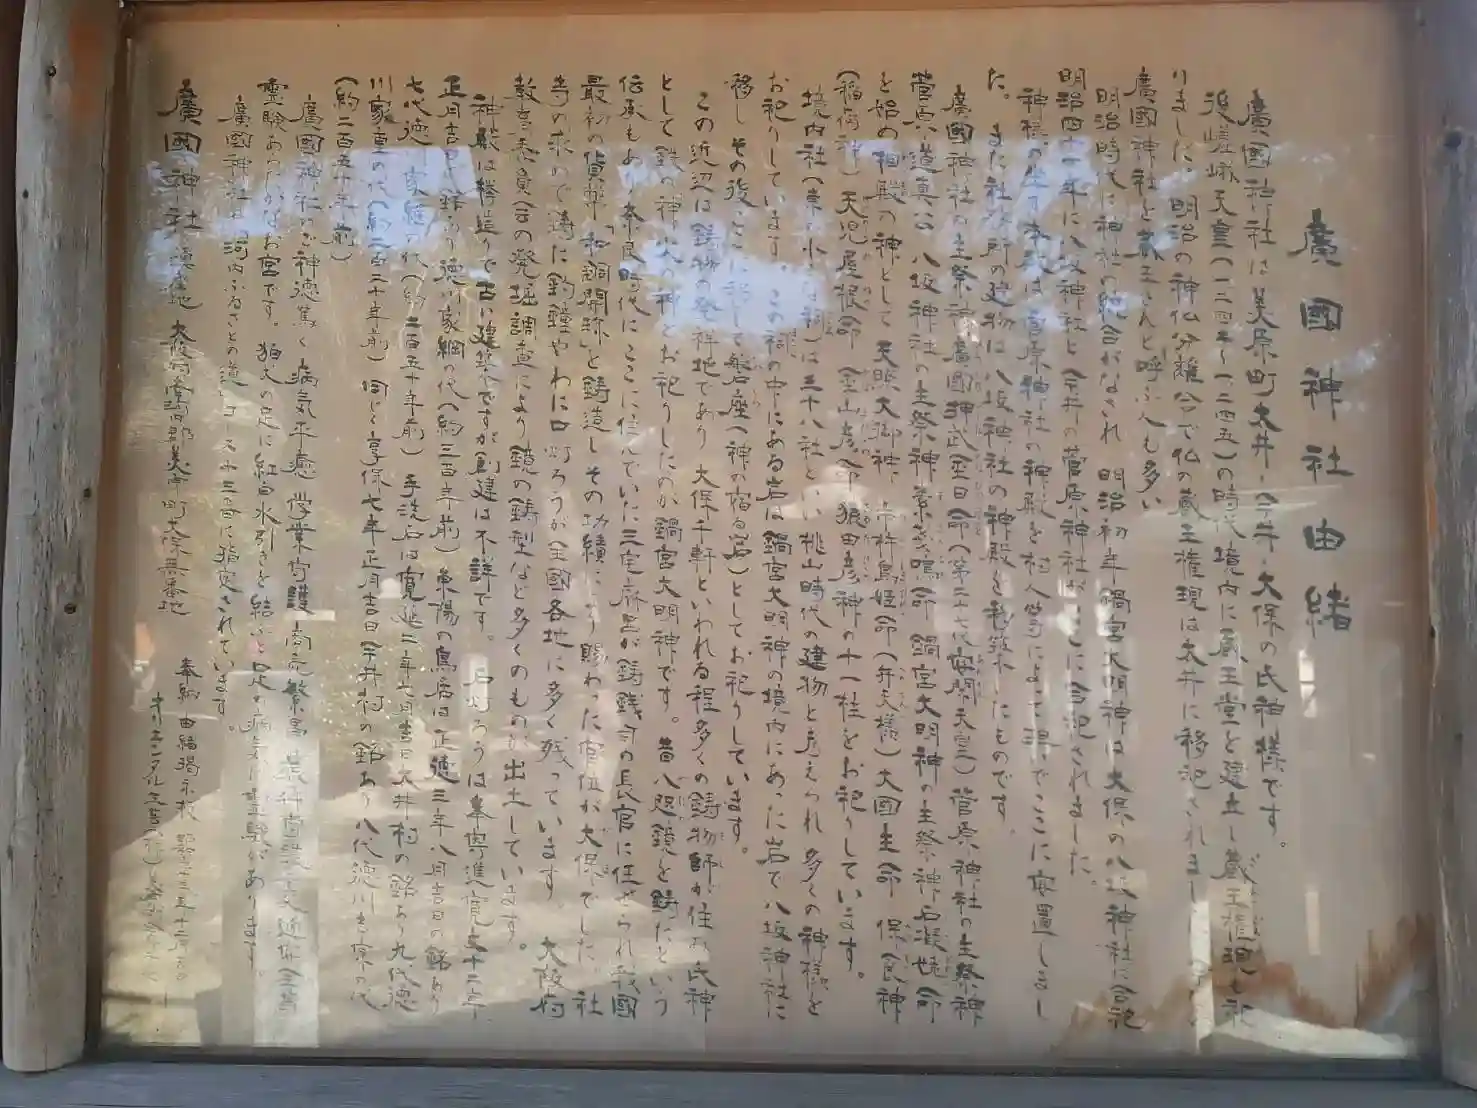 廣國神社由緒
廣國神社は美原町太井・今井・大保の氏神様です。
後嵯峨天皇(一二四二〜一二四五)の時代境内に蔵王堂を建立し蔵王権現も祀
りました。明治の神仏分離令で仏の蔵王権現は太井に移祀されまし
廣國神社を蔵王さんと呼ぶ人も多い
明治時代に神社の統合がなされ 明治初年鍋宮大明神は大保の八坂神社に合祀
明治四十年に八坂神社と今井の菅原神社がここに合祀されました。
神様の坐す本殿は菅原神社の神殿を村人等によって現でここに安置しまし
た。また社務所の建物は八坂神社の神殿を移築したものです。
廣國神社の主祭神 廣國押武金日命(第二十七代安閑天皇)菅原神社の主祭神
菅原道真公 八坂神社の主祭神 素戔嗚命 鍋宮大明神の主祭神石凝姥命
を始め相殿の神として天照大御神、市杵島姫命(弁天様)大國主命 保食神
(稲荷神)天児屋根命 金山彦命 猿田彦神の十一柱をお祀りしています。
境内社(東の小さな祠)は三十八社といい桃山時代の建物と考えられ多くの神様を
お祀りしています。この祠の中にある岩は鍋宮大明神の境内にあった岩で八坂神社に
移しその後ここに移して磐座(神の宿る岩)としてお祀りしています。
この近辺は鋳物の発祥地であり大保千軒といわれる程多くの鋳物師が住み氏神
として鉄の神火の神をお祀りしたのが鍋宮大明神です。昔八咫鏡を鋳たという
伝承もあり奈良時代にここに住んでいた三宅麻呂が鋳銭司の長官に任ぜられ我國
最初の貨幣「和銅開珎」を鋳造しその功績により賜わった官位が大保でした。社
寺の求めで鋳た釣鐘やわに口灯ろうが全國各地に多く残っています。大阪府
教育委員会の発掘調査により鏡の鋳型など多くのものが出土しています。
神殿は 造りで古い建築ですが創建は不詳です。石灯ろうは奉寄進寛文十二年
正月吉日 銘あり徳川家綱の代(約三百年前)東陽の鳥居は正徳三年八月吉日の銘あり
七代徳川家継の代(約二百五十年前)手洗石は寛延二年七月吉日太井村の銘あり九代徳
川家重の代(約二百二十年前)同じく享保七年正月吉日今井村の銘あり八代徳川吉宗の代
(約二百五十年前)
廣國神社のご神徳篤く病気平癒 学業守護 商売繁昌 交通安全等
霊験あらたかなお宮です。狛犬の足に紅白水引きを結ぶと足の病気に霊験があります。
廣國神社は河内ふるさとの道コース十三番に指定されています。
廣國神社 鎮座地 大阪府南河内郡美原町大保無番地
奉納 由緒掲示板
オリエンタル